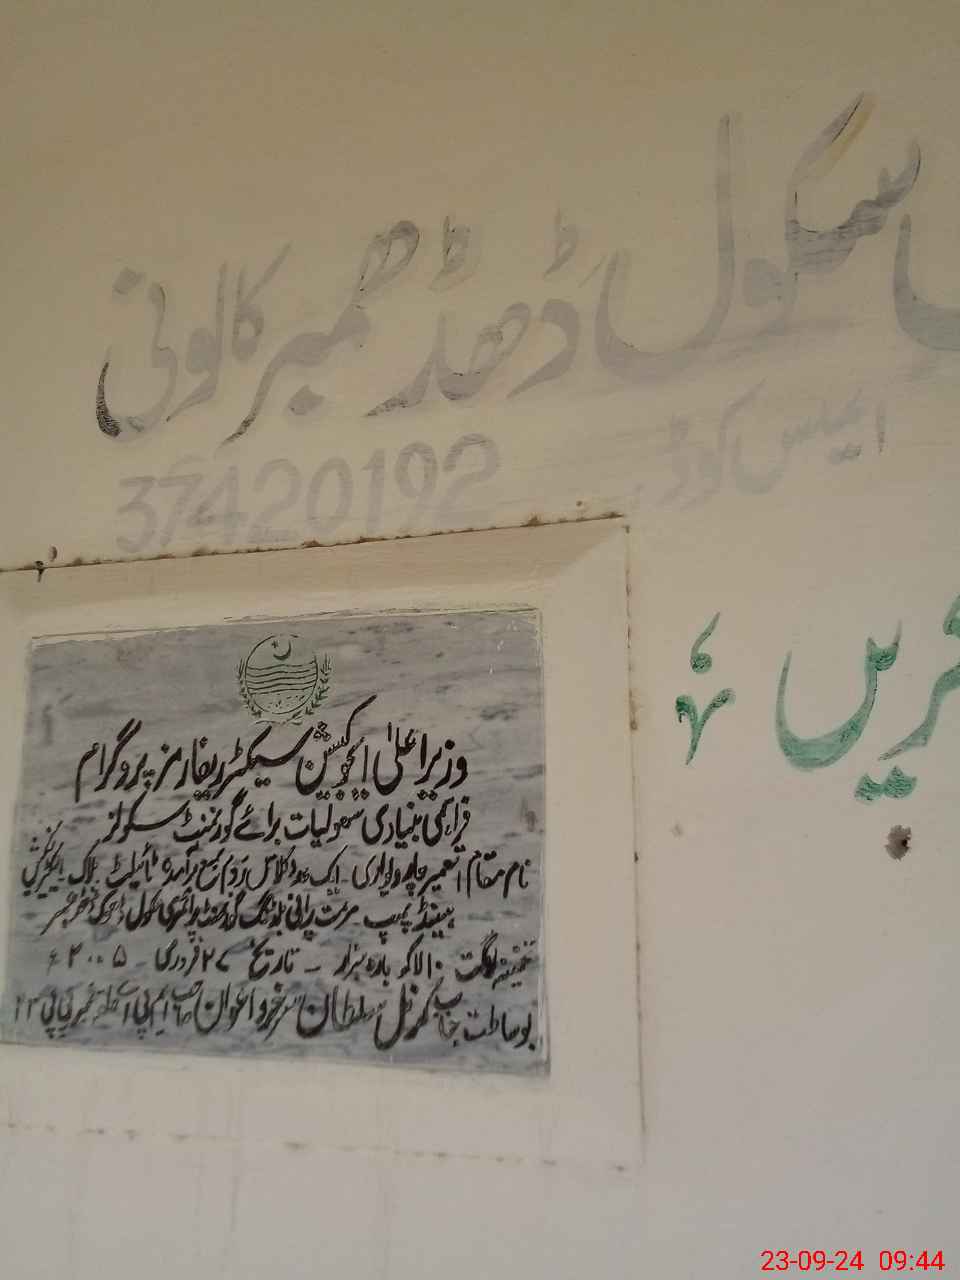 سکول ڈھڈھمبر کالونی
ایمس کوڈ
37420192
کریں
وزیراعلیٰ ایجوکیشن سیکٹر ریفارمز پروگرام
فراہمی بنیادی سہولیات برائے گورنمنٹ سکولز
نام مقام تعمیر چاردیواری ۔ ایک عدد کلاس روم بمع برآمدہ ٹائیلٹ بلاک
ہینڈ پمپ مرمت پرانی بلڈنگ گورنمنٹ پرائمری سکول
تخمینہ لاگت ۱۰ لاکھ بارہ ہزار ۔ تاریخ ۲۷ فروری ۔ ۲۰۰۵ء
بوساطت جناب کرنل سلطان سرخرو اعوان صاحب ایم پی اے حلقہ نمبر پی پی ۲۳
23-09-24 09:44